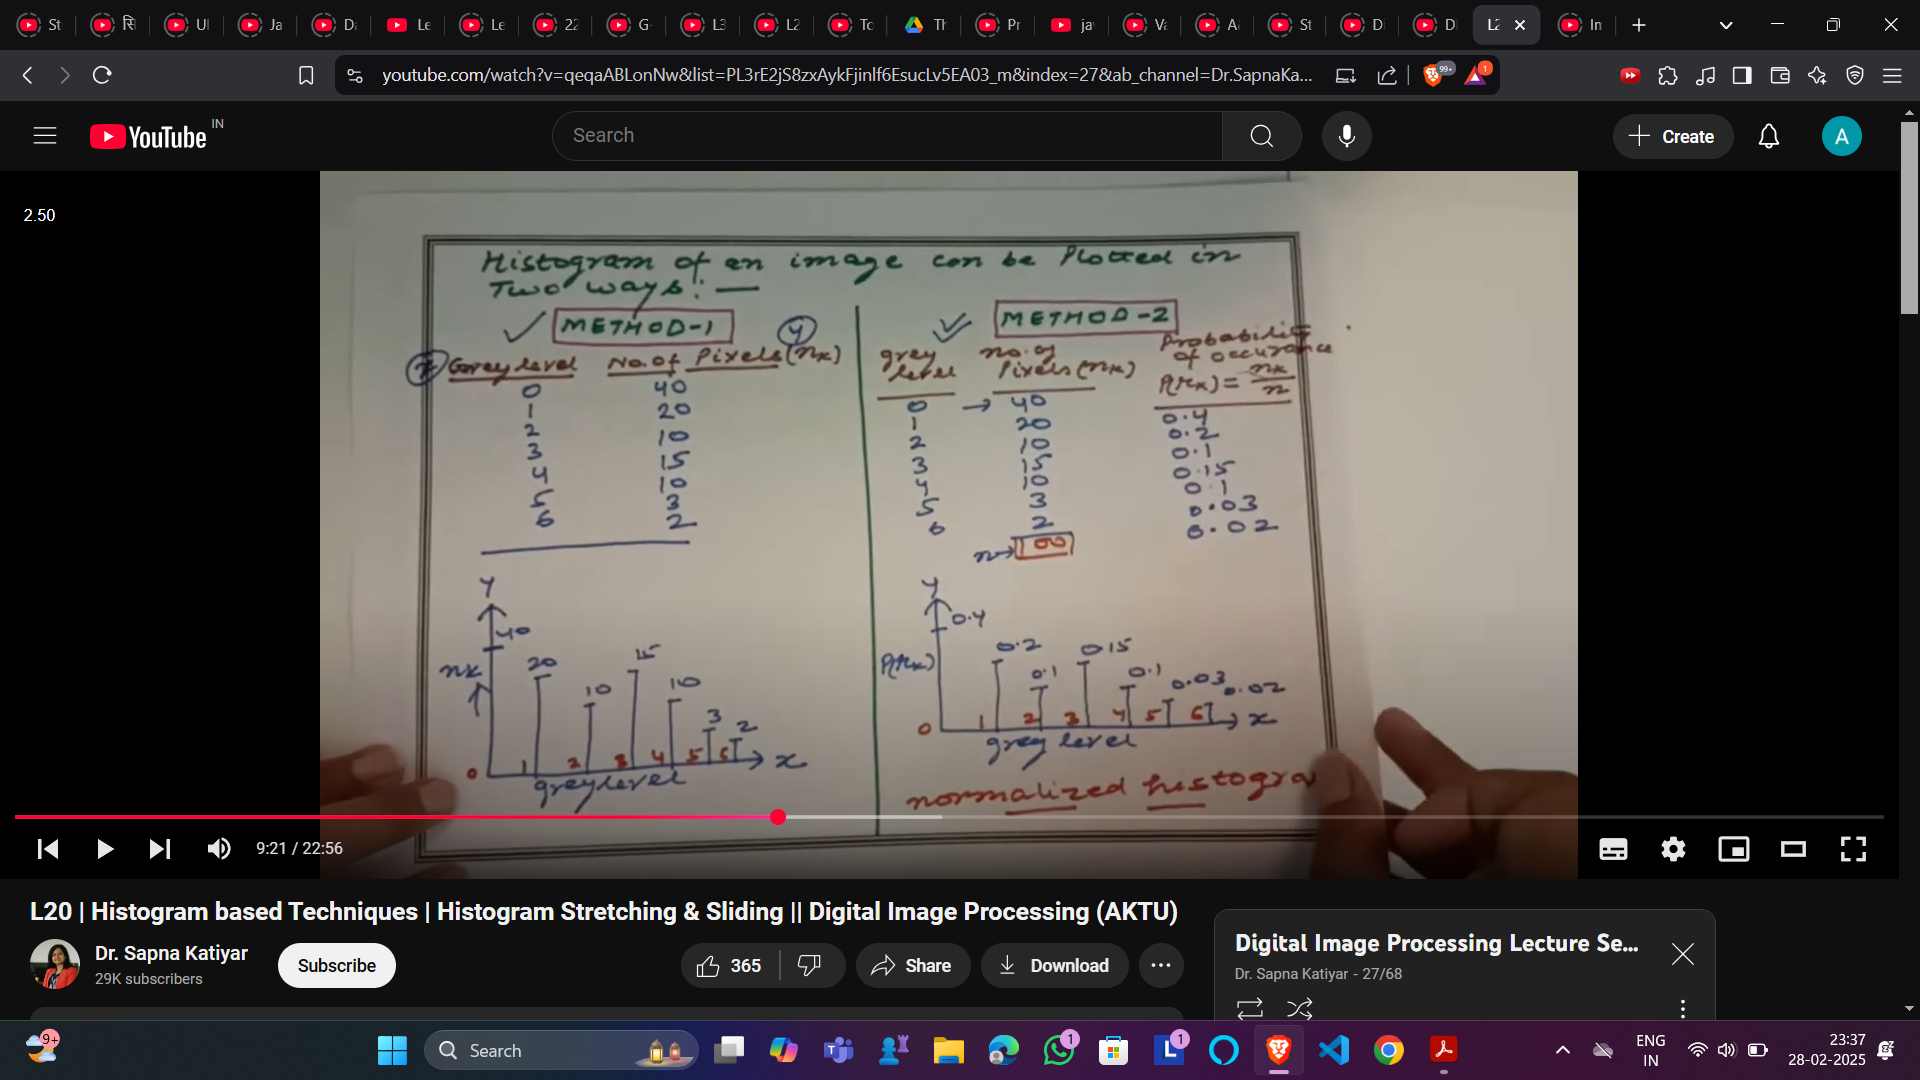 St
हि
Ul
Ja
Da
Le
Le
22
G-
L3
L2
To
Th
Pr
ja
Va
A
St
D
D
L2
In
youtube.com/watch?v=qeqaABLonNw&list=PL3rE2jS8zxAykFjinlf6EsucLv5EA03_m&index=27&ab_channel=Dr.SapnaKa...
99+
1
YouTube IN
Search
Create
A
2.50
Histogram of an image can be Plotted in
Two ways:—
METHOD-1
y
x Grey level No. of Pixels (nk)
0 40
1 20
2 10
3 15
4 10
5 3
6 2
Y
40
nk
20
10
15
10
3
2
0 1 2 3 4 5 6 x
grey level
METHOD-2
grey level no. of Pixels (nk) Probability of occurance P(rk) = nk/n
0 → 40 0.4
1 20 0.2
2 10 0.1
3 15 0.15
4 10 0.1
5 3 0.03
6 2 0.02
n→ 100
Y
0.4
P(rk)
0.2
0.1
0.15
0.1
0.03
0.02
0 1 2 3 4 5 6 x
grey level
normalized histogra
9:21 / 22:56
L20 | Histogram based Techniques | Histogram Stretching & Sliding || Digital Image Processing (AKTU)
Dr. Sapna Katiyar
29K subscribers
Subscribe
365
Share
Download
Digital Image Processing Lecture Se...
Dr. Sapna Katiyar - 27/68
9+
Search
1
L
1
ENG
IN
23:37
28-02-2025